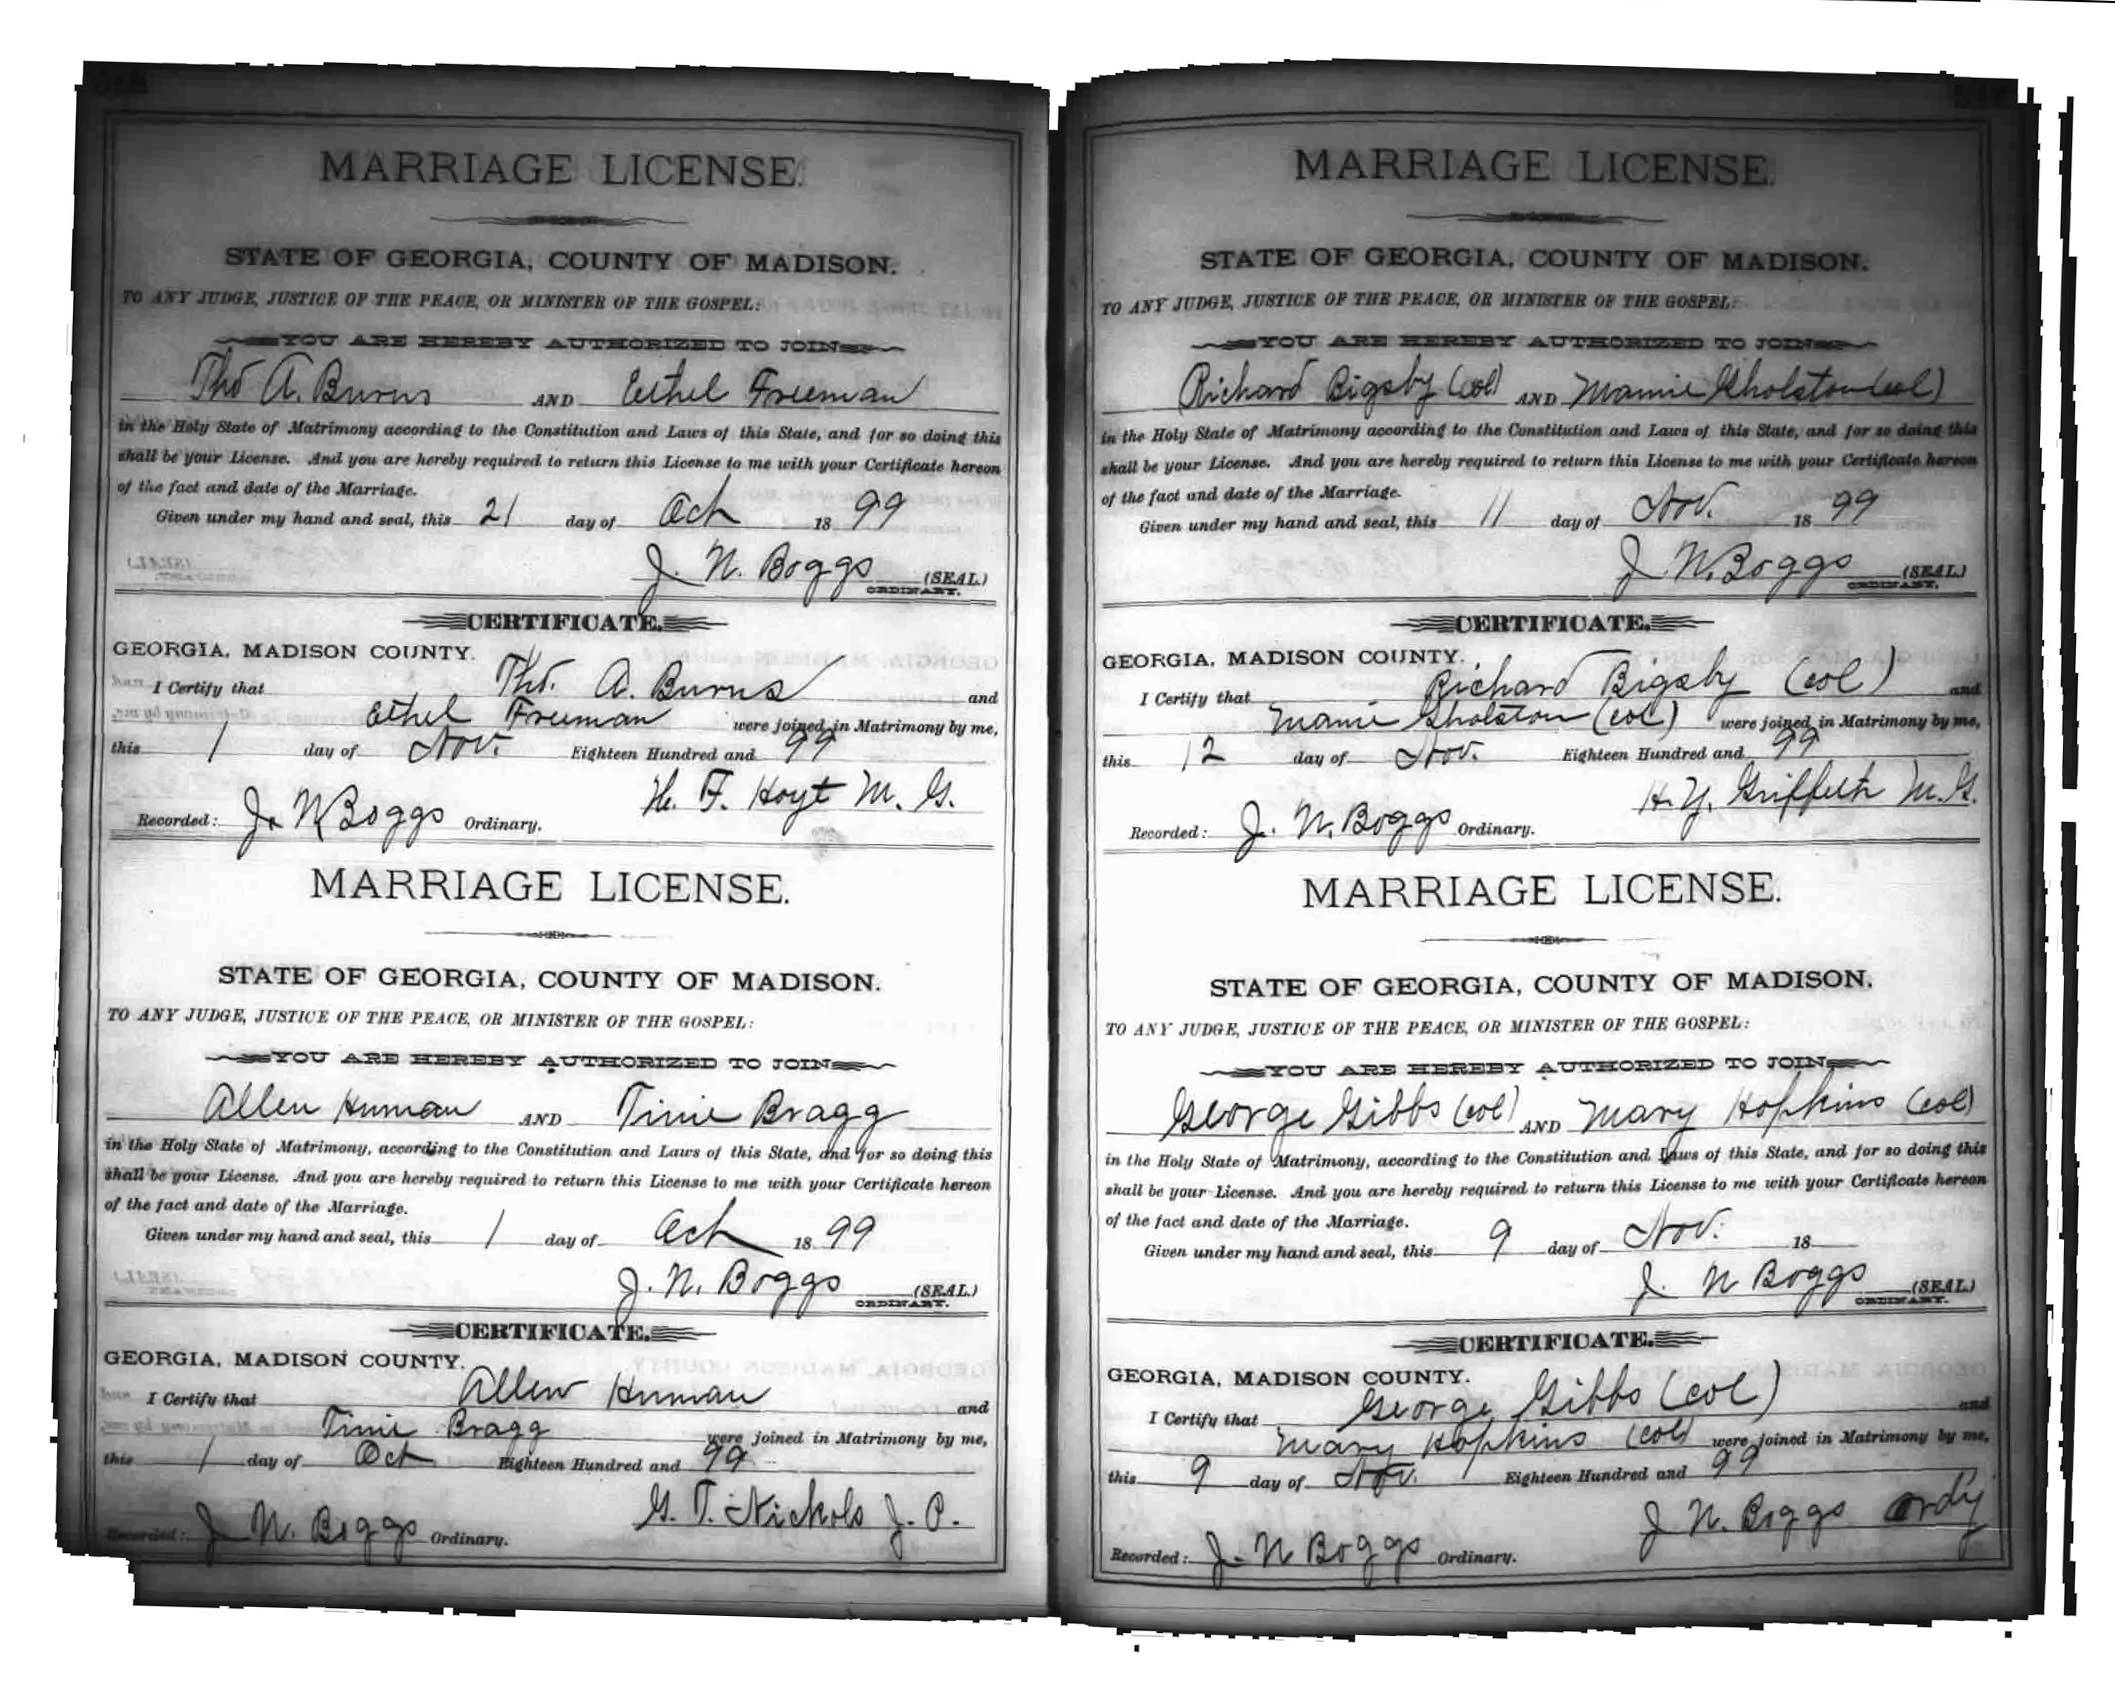 MARRIAGE LICENSE.
STATE OF GEORGIA, COUNTY OF MADISON.
TO ANY JUDGE, JUSTICE OF THE PEACE, OR MINISTER OF THE GOSPEL:
YOU ARE HEREBY AUTHORIZED TO JOIN
Tho A. Burns AND Ethel Freeman
in the Holy State of Matrimony according to the Constitution and Laws of this State, and for so doing this
shall be your License. And you are hereby required to return this License to me with your Certificate hereon
of the fact and date of the Marriage.
Given under my hand and seal, this 21 day of Oct 1899
J. N. Boggs (SEAL)
ORDINARY.
CERTIFICATE.
GEORGIA, MADISON COUNTY.
I Certify that Tho. A. Burns and
Ethel Freeman were joined in Matrimony by me,
this 1 day of Nov. Eighteen Hundred and 99
H. F. Hoyt M. G.
Recorded: J. N Boggs Ordinary.
MARRIAGE LICENSE.
STATE OF GEORGIA, COUNTY OF MADISON.
TO ANY JUDGE, JUSTICE OF THE PEACE, OR MINISTER OF THE GOSPEL:
YOU ARE HEREBY AUTHORIZED TO JOIN
Allen Human AND Tinie Bragg
in the Holy State of Matrimony, according to the Constitution and Laws of this State, and for so doing this
shall be your License. And you are hereby required to return this License to me with your Certificate hereon
of the fact and date of the Marriage.
Given under my hand and seal, this 1 day of Oct 1899
J. N. Boggs (SEAL)
ORDINARY.
CERTIFICATE.
GEORGIA, MADISON COUNTY.
I Certify that Allen Human and
Tinie Bragg were joined in Matrimony by me,
this 1 day of Oct Eighteen Hundred and 99
G. T. Nichols J. P.
Recorded: J. N. Boggs Ordinary.
MARRIAGE LICENSE.
STATE OF GEORGIA, COUNTY OF MADISON.
TO ANY JUDGE, JUSTICE OF THE PEACE, OR MINISTER OF THE GOSPEL:
YOU ARE HEREBY AUTHORIZED TO JOIN
Richard Bigsby (col) AND Mamie Gholston (col)
in the Holy State of Matrimony according to the Constitution and Laws of this State, and for so doing this
shall be your License. And you are hereby required to return this License to me with your Certificate hereon
of the fact and date of the Marriage.
Given under my hand and seal, this 11 day of Nov. 1899
J. N. Boggs (SEAL)
ORDINARY.
CERTIFICATE.
GEORGIA, MADISON COUNTY.
I Certify that Richard Bigsby (col) and
Mamie Gholston (col) were joined in Matrimony by me,
this 12 day of Nov. Eighteen Hundred and 99
H. Y. Griffeth M. G.
Recorded: J. N. Boggs Ordinary.
MARRIAGE LICENSE.
STATE OF GEORGIA, COUNTY OF MADISON.
TO ANY JUDGE, JUSTICE OF THE PEACE, OR MINISTER OF THE GOSPEL:
YOU ARE HEREBY AUTHORIZED TO JOIN
George Gibbs (col) AND Mary Hopkins (col)
in the Holy State of Matrimony, according to the Constitution and Laws of this State, and for so doing this
shall be your License. And you are hereby required to return this License to me with your Certificate hereon
of the fact and date of the Marriage.
Given under my hand and seal, this 9 day of Nov. 18
J. N Boggs (SEAL)
ORDINARY.
CERTIFICATE.
GEORGIA, MADISON COUNTY.
I Certify that George Gibbs (col) and
Mary Hopkins (col) were joined in Matrimony by me,
this 9 day of Nov. Eighteen Hundred and 99
J. N. Boggs Ordy
Recorded: J. N Boggs Ordinary.